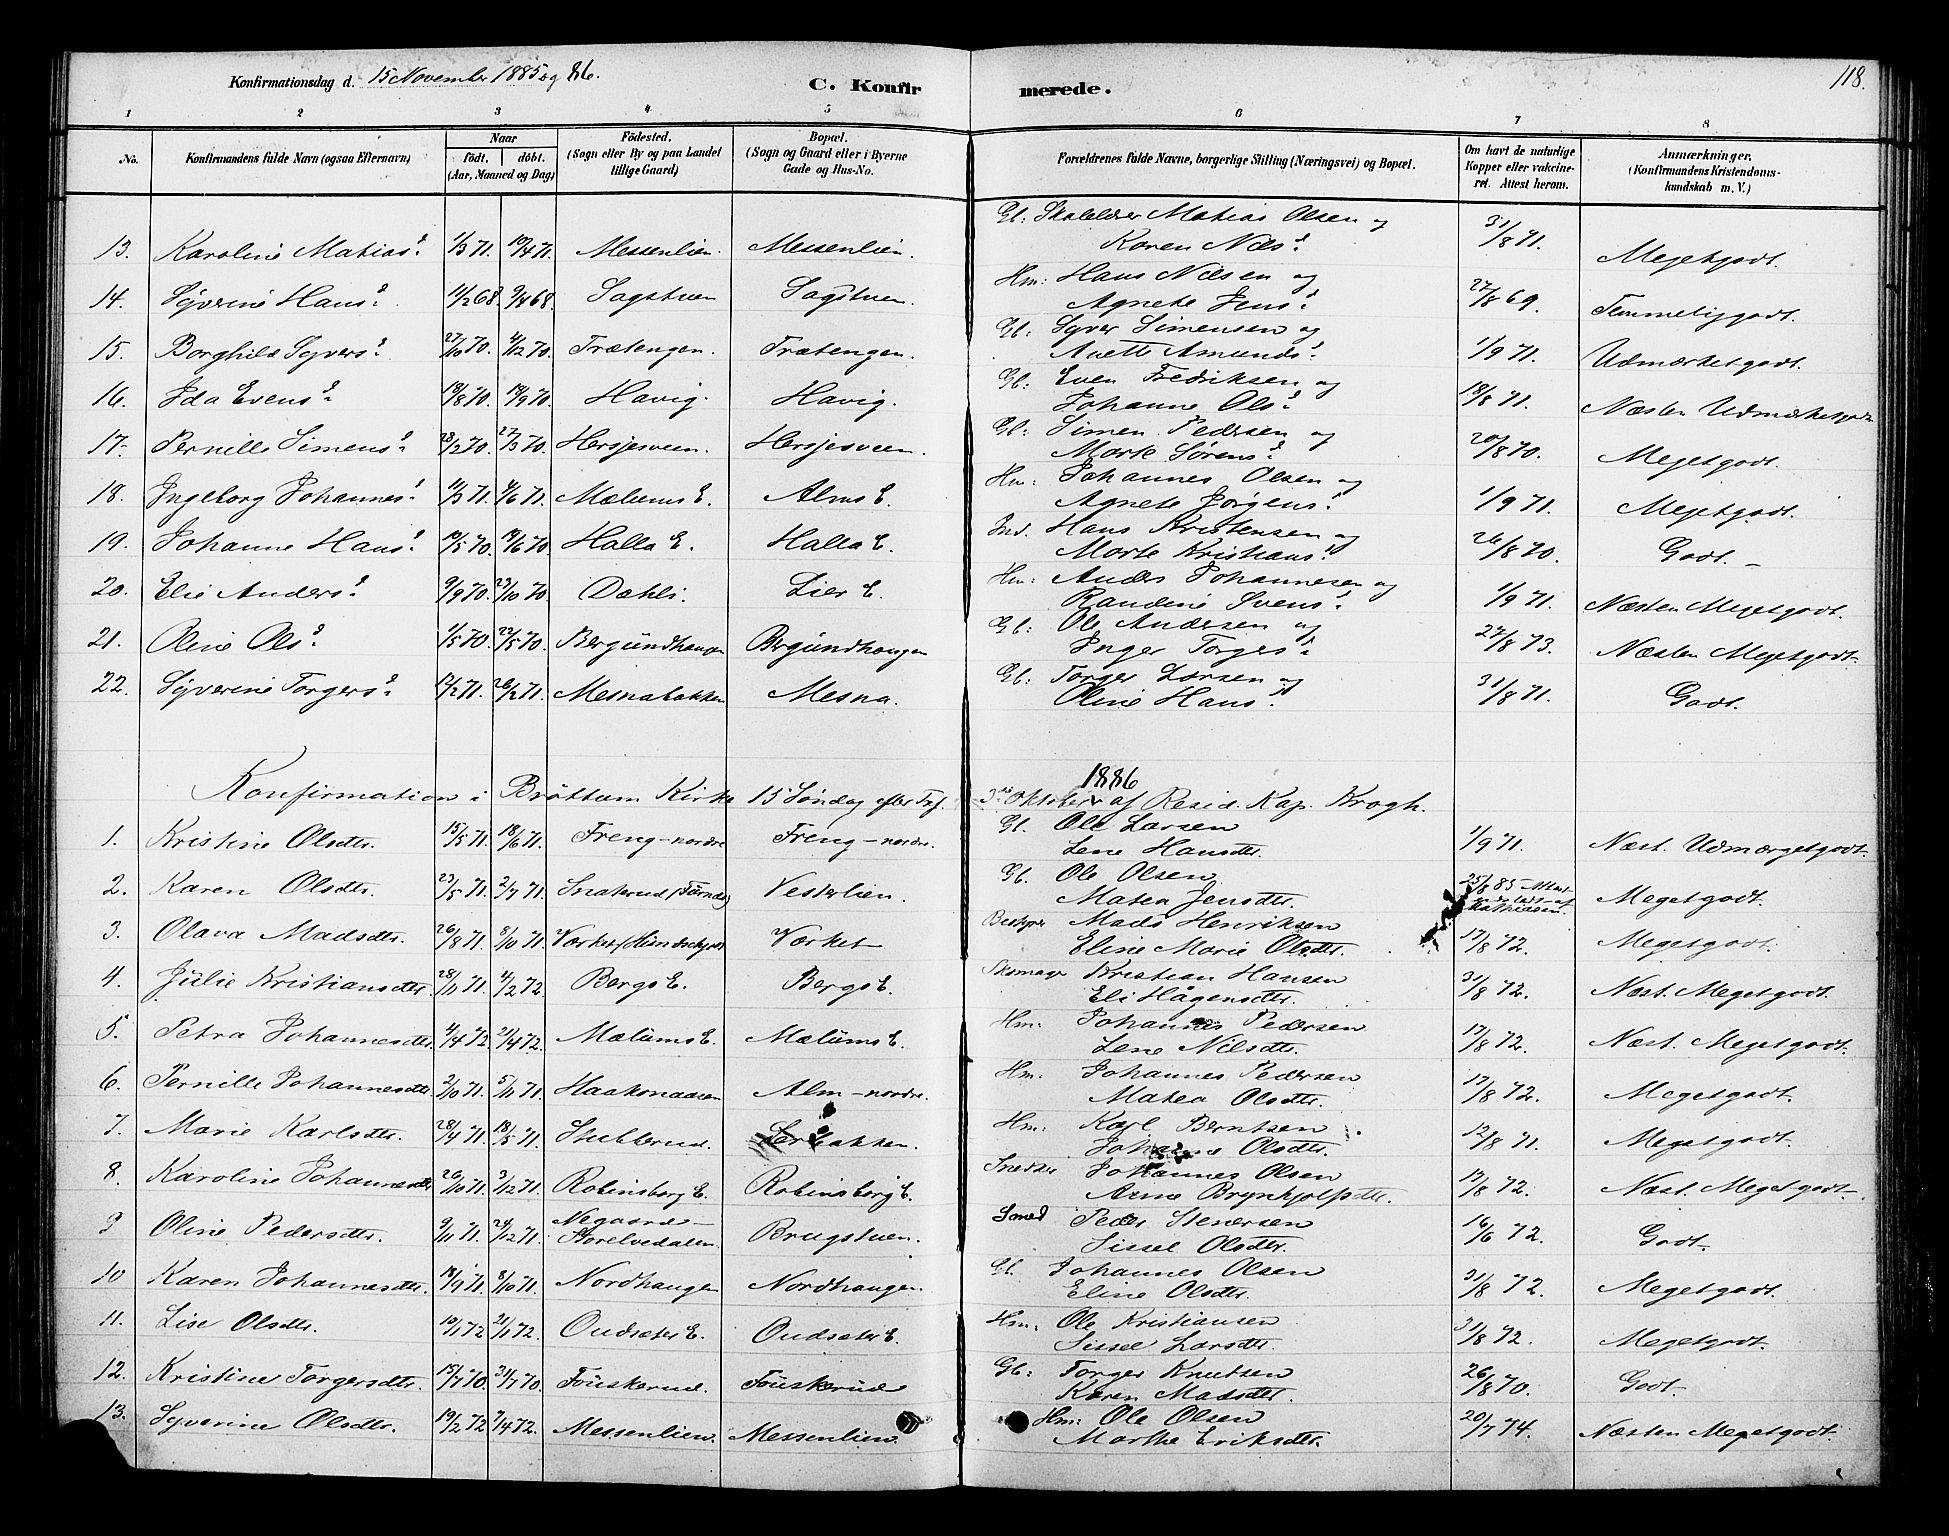 Konfirmationsdag d. 15 November 1885 og 86.
C. Konfirmerede.
118.
1 2 3 4 5 6 7 8
No.
Konfirmandens fulde Navn (ogsaa Efternavn)
Naar
födt. döbt.
(Aar, Maaned og Dag)
Födested.
(Sogn eller By og paa Landet tillige Gaard)
Bopæl.
(Sogn og Gaard eller i Byerne Gade og Hus-No.
Forældrenes fulde Navne, borgerlige Stilling (Næringsvei) og Bopæl.
Om havt de naturlige Kopper eller vakcineret. Attest herom.
Anmærkninger.
(Konfirmandens Kristendomskundskab m. V.)
13. Karoline Matiasd. 1/3 71. 10/4 71. Messenlien. Messenlien. Gb. Skolelærer Matias Olsen og Karen Nilsd. 31/8 71. Megetgodt.
14. Syverine Hansd. 11/2 68. 9/4 68. Sagstuen Sagstuen. Hm: Hans Nilsen og Agnete Jensd. 27/8 69. Temmeliggodt.
15. Borghild Syversd. 27/10 70. 4/12 70. Trætengen. Trætengen. Gb. Syver Simensen og Anette Amundsd. 1/9 71. Udmærketgodt.
16. Ida Evensd. 19/8 70. 18/9 70. Havig. Havig. Gb: Even Fredriksen og Johanne Olsd. 18/8 71. Næsten Udmærketgodt
17. Pernille Simensd. 28/2 70. 27/3 70. Hersjesveen. Hersjesveen. Gb: Simen Pedersen og Marte Sørensd. 20/8 70. Megetgodt.
18. Ingeborg Johannesd. 11/3 71. 4/6 71. Mælums E. Alms E. Hm: Johannes Olsen og Agnete Jørgensd. 1/9 71. Megetgodt.
19. Johanne Hansd. 19/5 70. 19/6 70. Halla E. Halla E. Ind. Hans Kristensen og Marte Kristiansd. 26/8 70. Godt.
20. Elie Andersd. 9/9 70. 23/10 70. Dæhli. Lier E. Hm: Anders Johannesen og Randine Svensd. 1/9 71. Næsten Megetgodt.
21. Oline Olsd. 1/5 70. 22/5 70. Bergundhaugen Bergundhaugen Gb: Ole Andersen og Inger Torgersd. 27/8 73. Næsten Megetgodt.
22. Syverine Torgersd. 17/2 71. 26/2 71. Mesnabakken Mesna. Gb: Torger Larsen og Oline Hansd. 31/8 71. Godt.
Konfirmation i Brøttum Kirke 15 Søndag efter Tref. 3die Oktober 1886 af Resid. Kap. Krogh.
1. Kristine Olsdtr. 15/5 71. 18/6 71. Freng-nordre Freng-nordre. Gb. Ole Larsen Lene Hansdtr. 1/9 71. Næst. Udmærgetgodt.
2. Karen Olsdtr. 23/5 71. 2/7 71. Snakerud Vesterlien. Gb. Ole Olsen Matea Jensdtr. 25/8 85 Megetgodt.
3. Olava Madsdtr. 26/8 71. 8/10 71. Værket Værket Bestyrer Mads Henriksen Eline Marie Olsdtr. 17/8 72. Megetgodt.
4. Julie Kristiansdtr 28/11 71. 4/2 72. Bergs E. Bergs E. Skomager Kristian Hansen Eli Hågensdtr. 31/8 72. Næst. Megetgodt.
5. Petra Johannesdtr. 4/4 72. 21/4 72. Mælums E. Mælums E. Hm: Johannes Pedersen Lene Nilsdtr. 17/8 72. Næst. Megetgodt.
6. Pernille Johannesdtr 2/10 71. 5/11 71. Haakonaasen Alm-nordre. Hm. Johannes Pedersen Matea Olsdtr. 17/8 72. Megetgodt.
7. Marie Karlsdtr. 28/4 71. 18/5 71. Stubberud. Lerbakken. Hm: Karl Berntsen Johanne Olsdtr. 12/8 71. Megetgodt.
8. Karoline Johannesdtr 26/10 71. 3/12 71. Robinsborg E. Robinsborg E. Snedker Johannes Olsen Arne Brynhjolfsdtr. 17/8 72. Næst. Megetgodt.
9 Oline Pedersdtr. 9/11 71. 24/12 71. Storelvedalen. Brugstuen. Smed Peder Stenersen Sissel Olsdtr. 16/6 72. Godt.
10 Karen Johannesdtr. 18/9 71. 8/10 71. Nordhaugen Nordhaugen. Gb. Johannes Olsen Eline Olsdtr. 31/8 72. Megetgodt.
11. Lise Olsdtr. 10/1 72 21/1 72. Oudsæter E. Oudsæter E. Hm: Ole Kristiansen Sissel Larsdtr. 31/8 72. Megetgodt.
12. Kristine Torgersdtr. 15/7 70. 31/7 70. Fouskerud. Fouskerud Gb: Torger Knutsen Karen Madsdtr. 26/8 70. Godt.
13. Syverine Olsdtr. 19/2 72 7/4 72. Messenlien. Messenlien. Hm: Ole Olsen Marthe Eriksdtr. 20/7 74. Næsten Megetgodt.